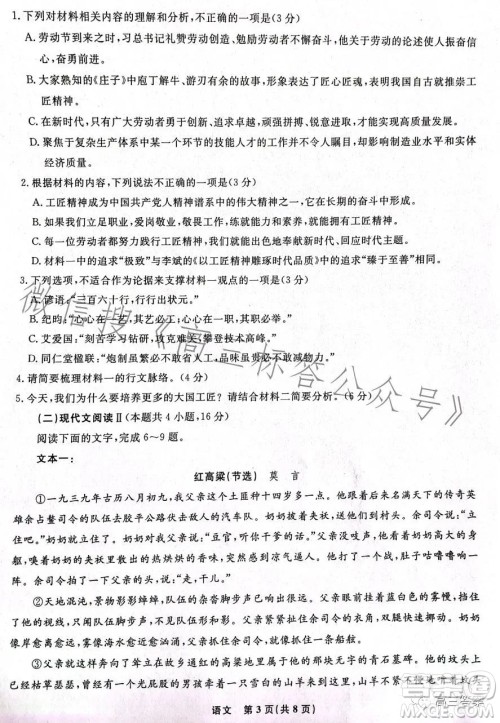 1.下列对材料相关内容的理解和分析,不正确的一项是(3分)
A.劳动节到来之时,习总书记礼赞劳动创造、勉励劳动者不懈奋斗,他关于劳动的论述使人振奋
信心。
B.大家熟知的《庄子》中庖丁解牛、游刃有余的故事,阐释了匠心匠魂,表明我国自古就推崇工
匠精神。
C.在新时代,只有广大劳动者勇于创新、追求卓越,才能展现
D.聚焦于复杂生产体系中某一个环节的技能人才的工作并不令人瞩目,却影响制造业水平和实体
经济质量。
2.根据材料的内容,下列说法不正确的一项是(3分)
A.工匠精神成为中国共产党人精神谱系的重要组成部分,体现了伟大的奋斗精神。
B.如果我们立足职业,爱岗敬业,勤学苦练,就能成为工匠人才。
C.每一位劳动者都能出色地奉献新时代,就能以工匠精神
D.材料二中“极致”与李斌的《以工匠精神雕琢时代品质》中“追求‘臻于至善’”相吻合。
3.下列选项,不适合作为论据来支撑材料一观点的一项是(3分)
A.谚语:“三百六十行,行行出状元。”
B.纪昀:“心心在一艺,其艺必工;心心在一职,其职必举。”
C.艾爱国:“刻苦学习钻研,攻克难关,攀登技术高峰。”
D.同仁堂楹联:“炮制虽繁必不敢省人工,品味虽贵必不敢减物力。”
4.请简要梳理材料一的行文脉络。(4分)
5.今天,我们为什么要培养更多的大国工匠?请结合材料二简要分析。(6分)
(二)现代文阅读Ⅱ(本题共4小题,16分)
阅读下面的文字,完成6~9题。
文本一:
红高粱(节选) 莫言
①一九三九年古历八月初九,我父亲这个土匪种十四岁多一点。他跟着后来名满天下的传奇英
雄余占鳌司令的队伍去胶平公路伏击敌人的汽车队。奶奶披着夹袄,送他们到村头。余司令说:“立
住吧。”奶奶就立住了。奶奶对我父亲说:“豆官,听你干爹的话。”父亲没吱声,他看着奶奶高大的身
躯,嗅着奶奶的夹袄里散出的热烘烘的香味,突然感到凉气逼人。他打了一个战,肚子咕噜噜响一
阵。余司令拍了一下父亲的头,说:“走,干儿。”
②天地混沌,景物影影绰绰,队伍的杂沓脚步声已响出很远。父亲眼前挂着蓝白色的雾幔,挡
住了他的视线,只闻队伍脚步声,不见队伍形和影。父亲紧紧扯住余司令的衣角,双腿快速挪动。奶
奶像岸愈离愈远,雾像海水愈近愈汹涌,父亲抓住余司令,就像抓住一条船舷。
③父亲就这样奔向了耸立在故乡通红的高粱地里属于他的那块无字的青石墓碑。他的坟头上
已经枯草瑟瑟,曾经有一个光屁股的男孩牵着一只雪白的山羊来到这里,山羊不紧不忙地啃着坟头
语文 第3页(共8页)
微信搜《高三标答公众号》